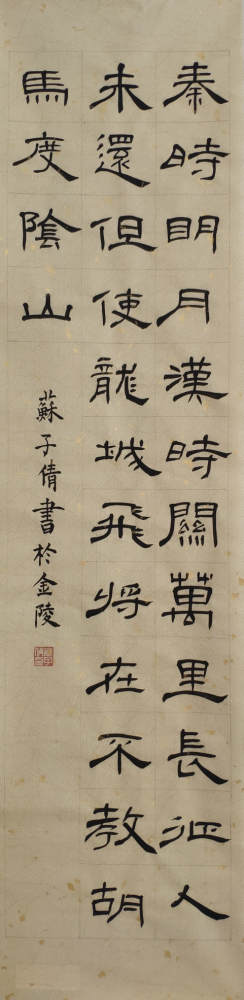 秦時明月漢時關萬里長征人
未還但使龍城飛将在不教胡
馬度陰山
蘇子倩書於金陵